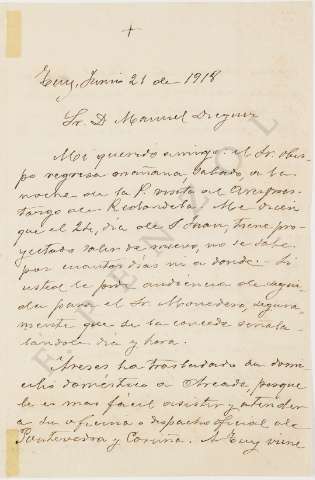 +
Tuy, Junio 21 de 1918
Sr. D. Manuel Dieguez
Mi querido amigo: el Sr. Obis-
po regresa mañana sabado, a la
noche de la P. visita al Arcipres-
tazgo de Redondela. Me dicen
que el 24, dia de S Juan, tiene pro-
yectado salir de nuevo, no se sabe
por cuantos dias ni a donde. Si
usted le pide audiencia de segui-
da para el Sr. Monedero, segura-
mente que se la concede señala-
landole dia y hora.
ha trasladado su domi-
cilio domestico a Arcade, porque
le es mas fácil asistir y atender
a su oficina o despacho oficial de
Pontevedra y Coruña. A Tuy viene